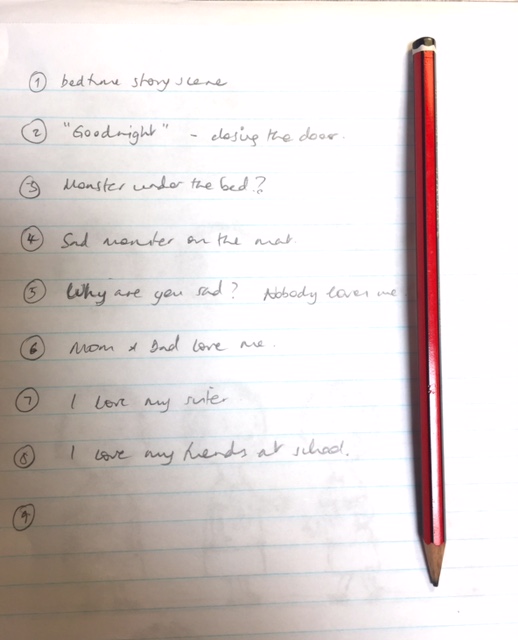 1 bedtime story scene
2 "Goodnight" - closing the door.
3 Monster under the bed?
4 Sad monster on the mat.
5 Why are you sad? Nobody loves me
6 Mom & Dad love me.
7 I love my sister
8 I love my friends at school.
9